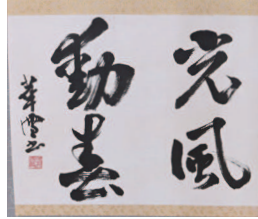 光風
動春
華雪書